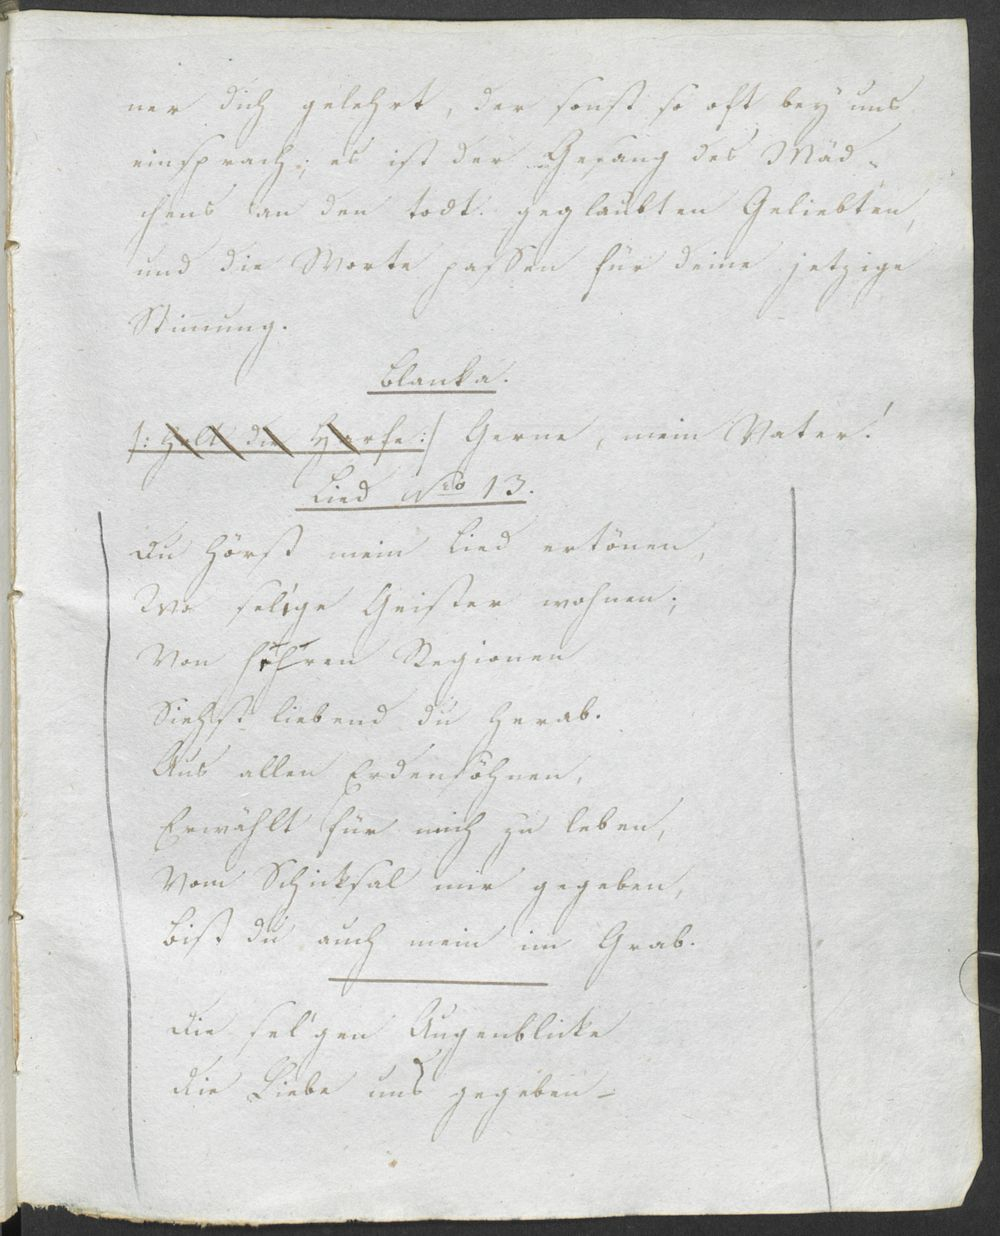 ner dich gelehrt, der sonst so oft bey uns
einsprach; es ist der Gesang des Mäd-
chens an den todt geglaubten Geliebten,
und die Worte passen für deine jetzige
Stimmung.
Blanka.
/: Holt die Harfe :/ Gerne, mein Vater!
Lied Nro 13.
Du hörst mein Lied ertönen,
Wo sel'ge Geister wohnen;
Von höhren Regionen
Siehst liebend du herab.
Aus allen Erdensöhnen,
Erwählt für mich zu leben,
Vom Schicksal mir gegeben,
Bist du auch mein im Grab.
Die sel'gen Augenblicke
Die Liebe uns gegeben –